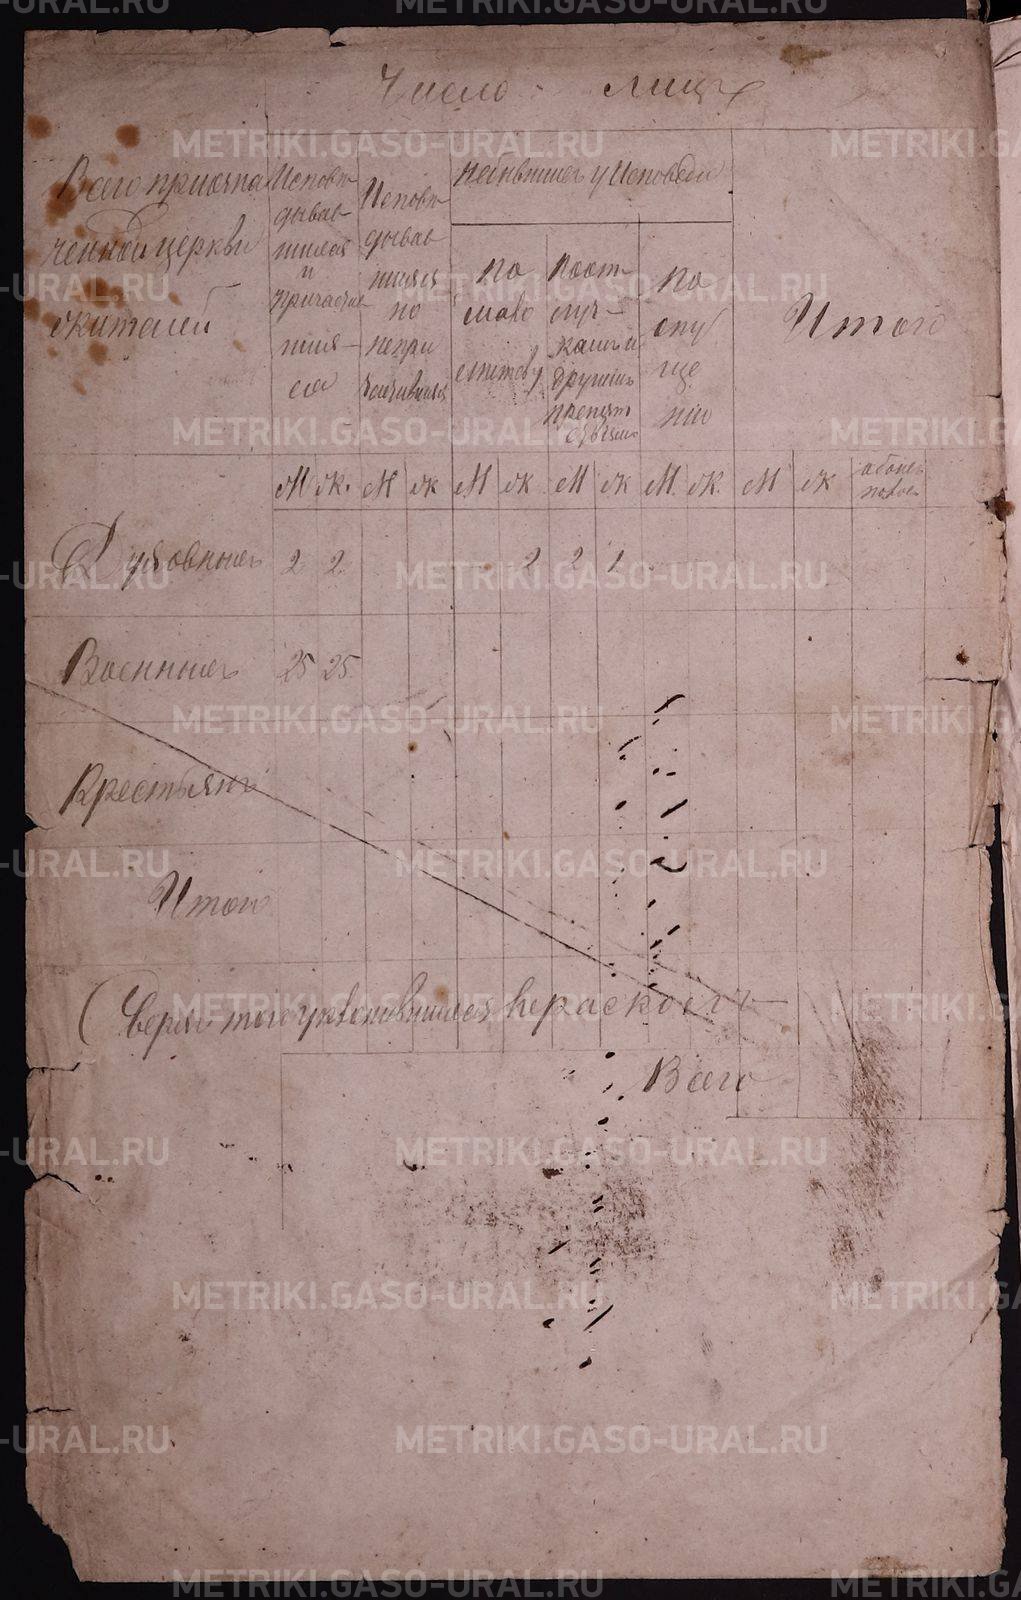 Число лицъ
Всего при озна
ченной церкви
жителей
Исповѣ
дывав
шихся
и
причастив
шихся
Исповѣ
дывав
шихся
но
непри
частившихся
небывшихъ у Исповеди
по
мало
лѣтству
по от
луч-
камъ и
другимъ
препят
ствіямъ
по
опу
ще
нію
Итого
М ж. М ж М ж М ж М. ж. М ж обоего
полов.
Духовныхъ 2 2 2 2 1
Военныхъ 25 25
Крестьянъ
Итого
(Сверхъ того уклонившихся в расколъ
Всего
METRIKI.GASO-URAL.RU